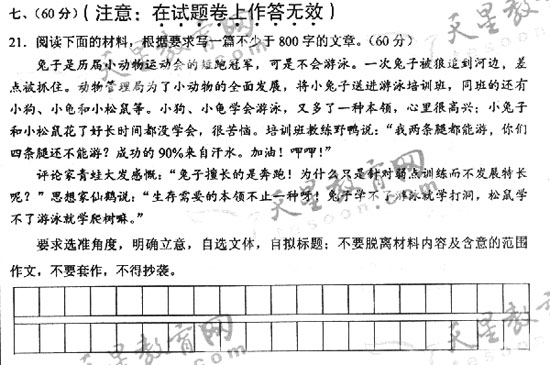 七、(60分)(注意：在试题卷上作答无效)
21. 阅读下面的材料，根据要求写一篇不少于800字的文章。(60分)
兔子是历届小动物运动会的短跑冠军，可是不会游泳。一次兔子被狼追到河边，差
点被抓住。动物管理局为了小动物的全面发展，将小兔子送进游泳培训班，同班的还有
小狗、小龟和小松鼠等。小狗、小龟学会游泳，又多了一种本领，心里很高兴；小兔子
和小松鼠花了好长时间都没学会，很苦恼。培训班教练野鸭说：“我两条腿都能游，你们
四条腿还不能游？成功的90%来自汗水。加油！呷呷！”
评论家青蛙大发感慨：“兔子擅长的是奔跑！为什么只是针对弱点训练而不发展特长
呢？”思想家仙鹤说：“生存需要的本领不止一种呀！兔子学不了游泳就学打洞，松鼠学
不了游泳就学爬树嘛。”
要求选准角度，明确立意，自选文体，自拟标题；不要脱离材料内容及含意的范围
作文，不要套作，不得抄袭。
天星教育网
tesoon.com
天星教育网
tesoon.com
天星教育网
tesoon.com
天星教